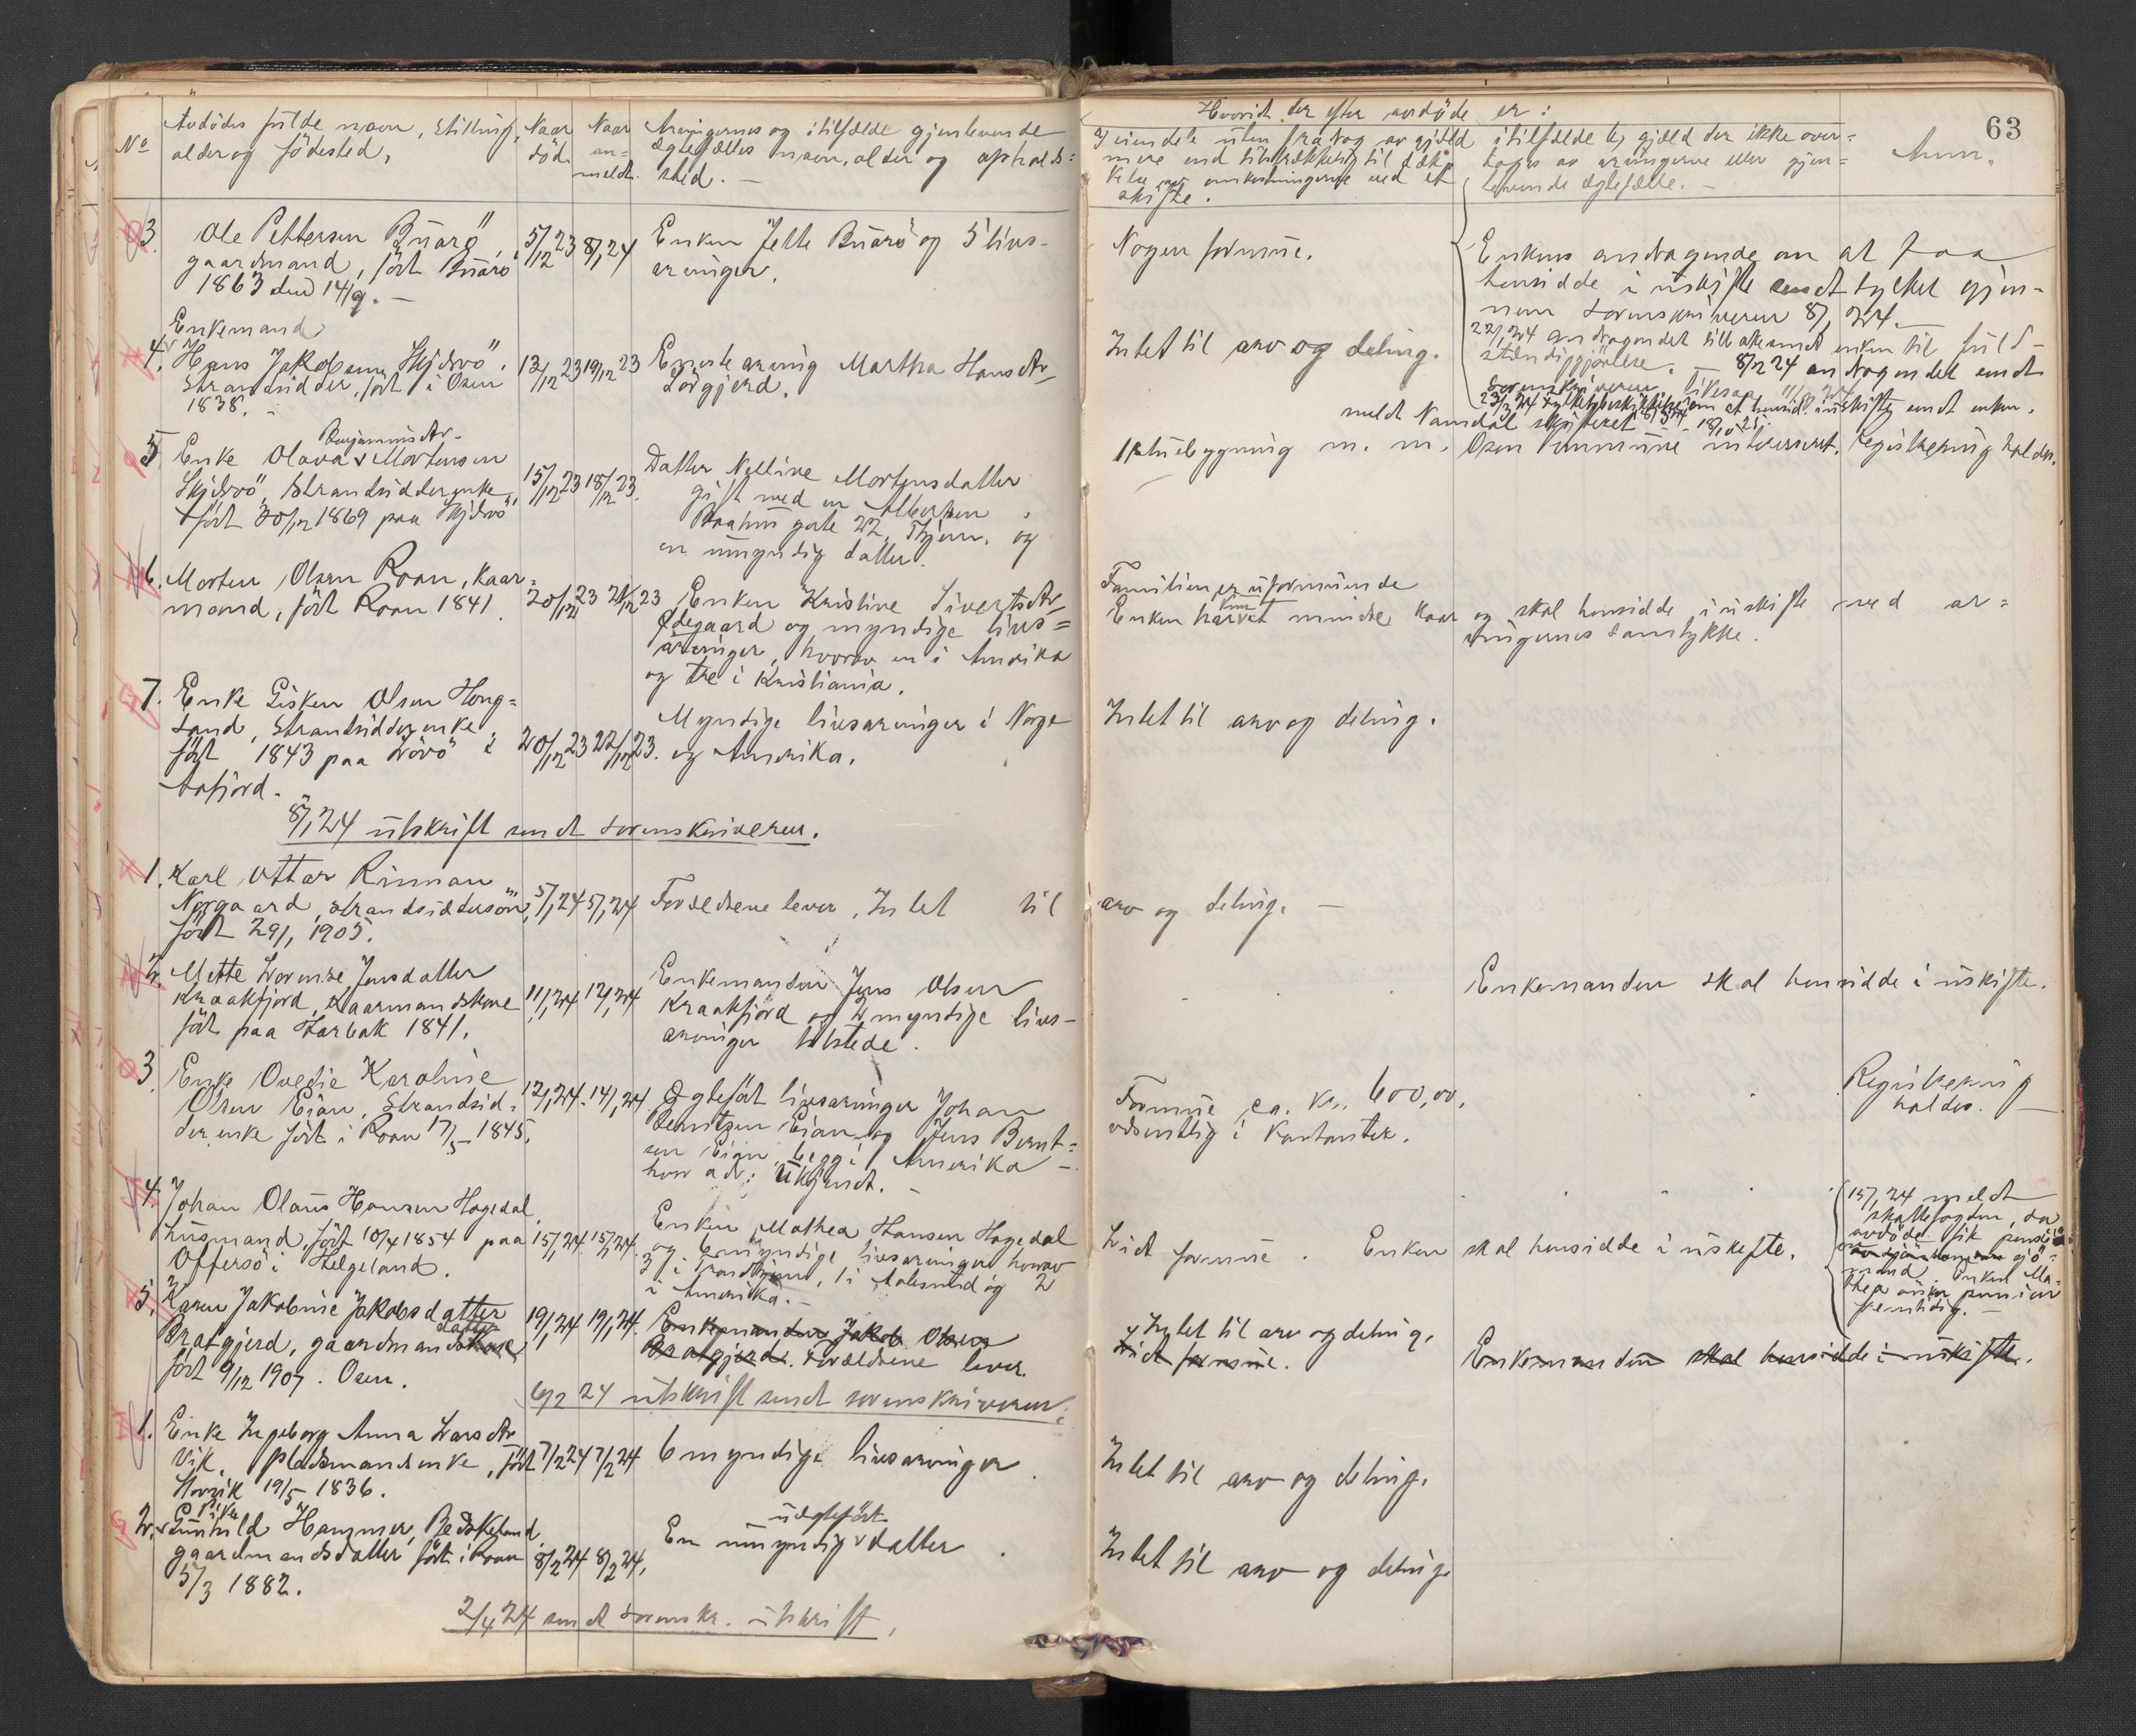 No
Avdödes fulde navn, stilling,
alder og födested.
Naar
död.
Naar
an=
meldt.
Arvingernes og i tilfælde gjenlevende
ægtefælles navn, alder og opholds=
sted. —
Hvorvidt der efter avdöde er:
I eiendele uten fradrag av gjæld
mere end tilstrækkelig til dæk
kelse av omkostningerne ved et
skifte.
i tilfælde lz gjæld der ikke over=
tages av arvingerne eller gjen=
levende ægtefælle. —
Anm.
63
3.
Ole Pettersen Buarö
gaardmand, fört Buarö
1863 den 14/9. —
5/12 23
8/1 24
Enken Jette Buarö og 5 livs-
arvinger.
Nogen formue.
Enkens andragende om at faa
hensidde i uskifte sendt fylket gjen-
nem sorenskriveren 8/1 24. —
22/1 24 andragendet tilbakesendt enken til fuld-
stændiggjörelse. — 8/2 24 andragendet sendt
sorenskriveren
Enkemand
4. Hans Jakobsen Skjervö.
Strandsidder, fört i Osen
1838. —
13/12 23
19/12 23
Eneste arving Martha Hansdtr
Sörgjerd.
Intet til arv og deling.
5
Benjaminsdtr
Enke Olava Mortensen
Skjervö, strandsidderenke
fört 20/12 1869 paa Skjervö
15/12 23
18/12 23.
Datter Nelline Mortensdatter
gift med en Albertsen
gate 22, Thjem. og
en umyndig datter.
meldt Namdal skifteret
1 stuebygning m. m. Osen kommune interesseret. Registrering holdes.
6. Morten Olsen Roan, kaar=
mand, fört Roan 1841.
20/12 23
21/12 23
Enken Kristine Sivertsdtr
Ødegaard og myndige livs=
arvinger, hvorav en i Amerika
og tre i Kristiania.
Familien er uformuende
Enken har et mindre kaar og skal hensidde i uskifte med ar=
vingernes samtykke.
7. Enke Lisken Olsen Hong=
sand, strandsidderenke
fört 1843 paa Lövö i
Aafjord.
20/12 23
22/12 23.
Myndige livsarvinger i Norge
og Amerika.
Intet til arv og deling.
8/1 24 utskrift sendt sorenskriveren.
1. Karl Ottar Rinman
Norgaard, strandsiddersön,
fört 29/1 1905.
5/1 24
5/1 24
Forældrene lever. Intet til arv og deling. —
2. Mette Lovise Jensdatter
Kraakfjord, kaarmandskone
fört paa Harbak 1841.
11/1 24
12/1 24
Enkemanden Jens Olsen
Kraakfjord og 2 myndige livs-
arvinger tilstede.
Enkemanden skal hensidde i uskifte.
3.
Enke Ovedie Karoline
Olsen Eian, strandsid=
derenke fört i Roan 17/5 1845.
12/1 24.
14/1 24
Ægtefört livsarvinger Johan
Berntzen Eian og Jens Bernt=
sen Eian, begge i Amerika —
hvor adr: ukjendt. —
Formue ca. kr. 600,00,
væsentlig i kontanter.
Registrering
holdes. —
4. Johan Olaus Hansen Hagedal,
husmand, fört 10/4 1854 paa
Offersö i Helgeland.
15/1 24
15/1 24
Enken Mathea Hansen Hagedal
og 6 myndige livsarvinger hvorav
3 i Trondhjem, 1 i Aalesund og 2
i Amerika. —
Lidt formue. Enken skal hensidde i uskifte.
15/1 24 meldt
skattefogden, da
avdöde fik pension
sjö=
mand. Enken Ma=
thea önsker pension
fremtidig. —
5. Karen Jakobine Jakobsdatter
Bratgjerd, gaardmandskone datter
fört 9/12 1907. Osen.
19/1 24
19/1 24.
Enkemanden Jakob Olsen
Bratgjerd. Forældrene lever.
Intet til arv og deling.
Lidt formue.
Enkemanden skal hensidde i uskifte.
6/2 24 utskrift sendt sorenskriveren.
1. Enke Ingeborg Anna Larsdtr
Vik, pladsmandsenke, fört
Hovik 19/5 1836.
7/2 24
7/2 24
6 myndige livsarvinger.
Intet til arv og deling.
2.
Pike
Gunhild Hammer, Beskeland
gaardmandsdatter, fört i Roan
5/3 1882.
8/2 24
8/2 24.
uægtefört
En umyndig datter.
Intet til arv og deling
2/4 24 sendt sorenskr. utskrift.